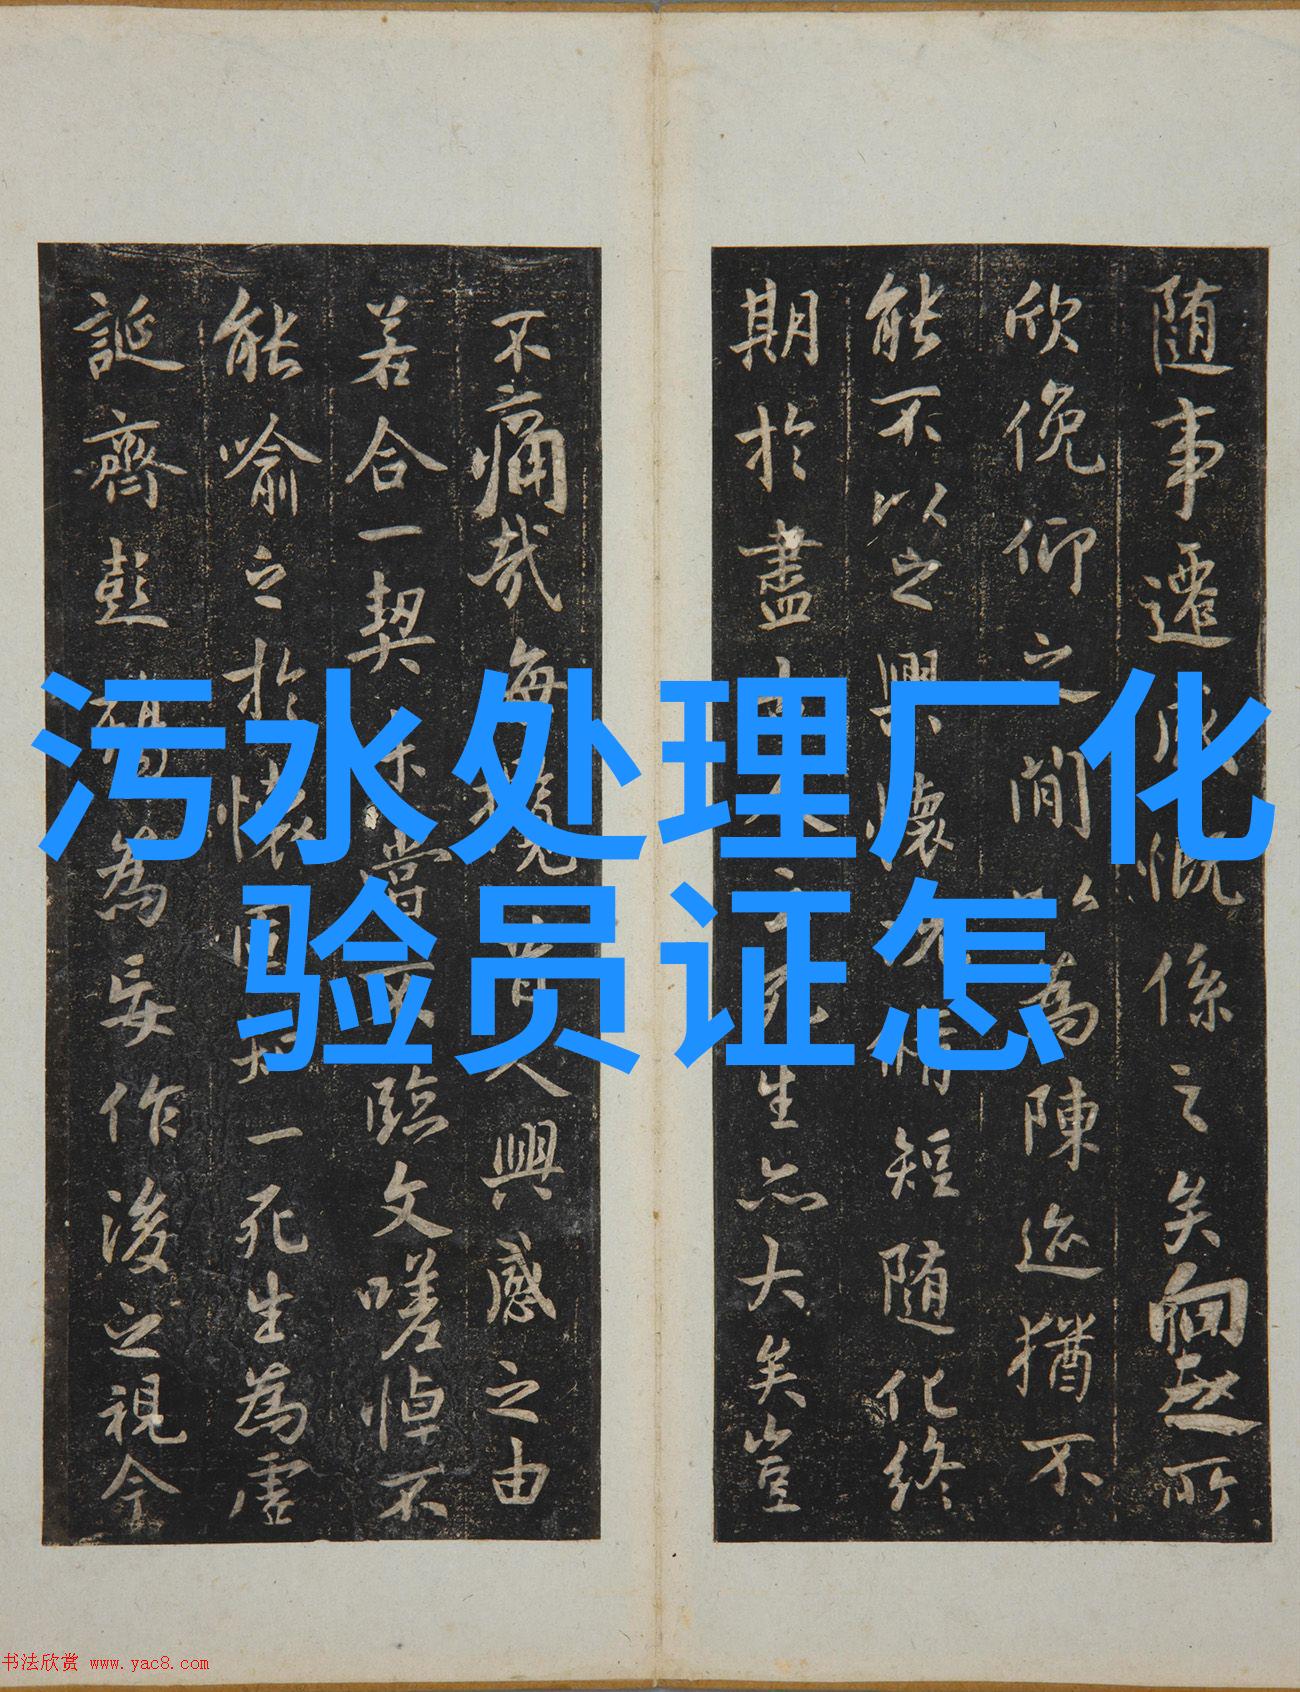 污水处理厂化
验员证怎
随事遷感慨係之矣向之所
欣俛仰之閒以為陳迹猶不
能不以之興懷況脩短随化終
期於盡古人云死生亦大矣豈
不痛哉每攬昔人興感之由
若合一契未嘗不臨文嗟悼不
能喻之於懷固知一死生為虛
誕齊彭殤為妄作後之視今
书法欣赏 www.yac8.com